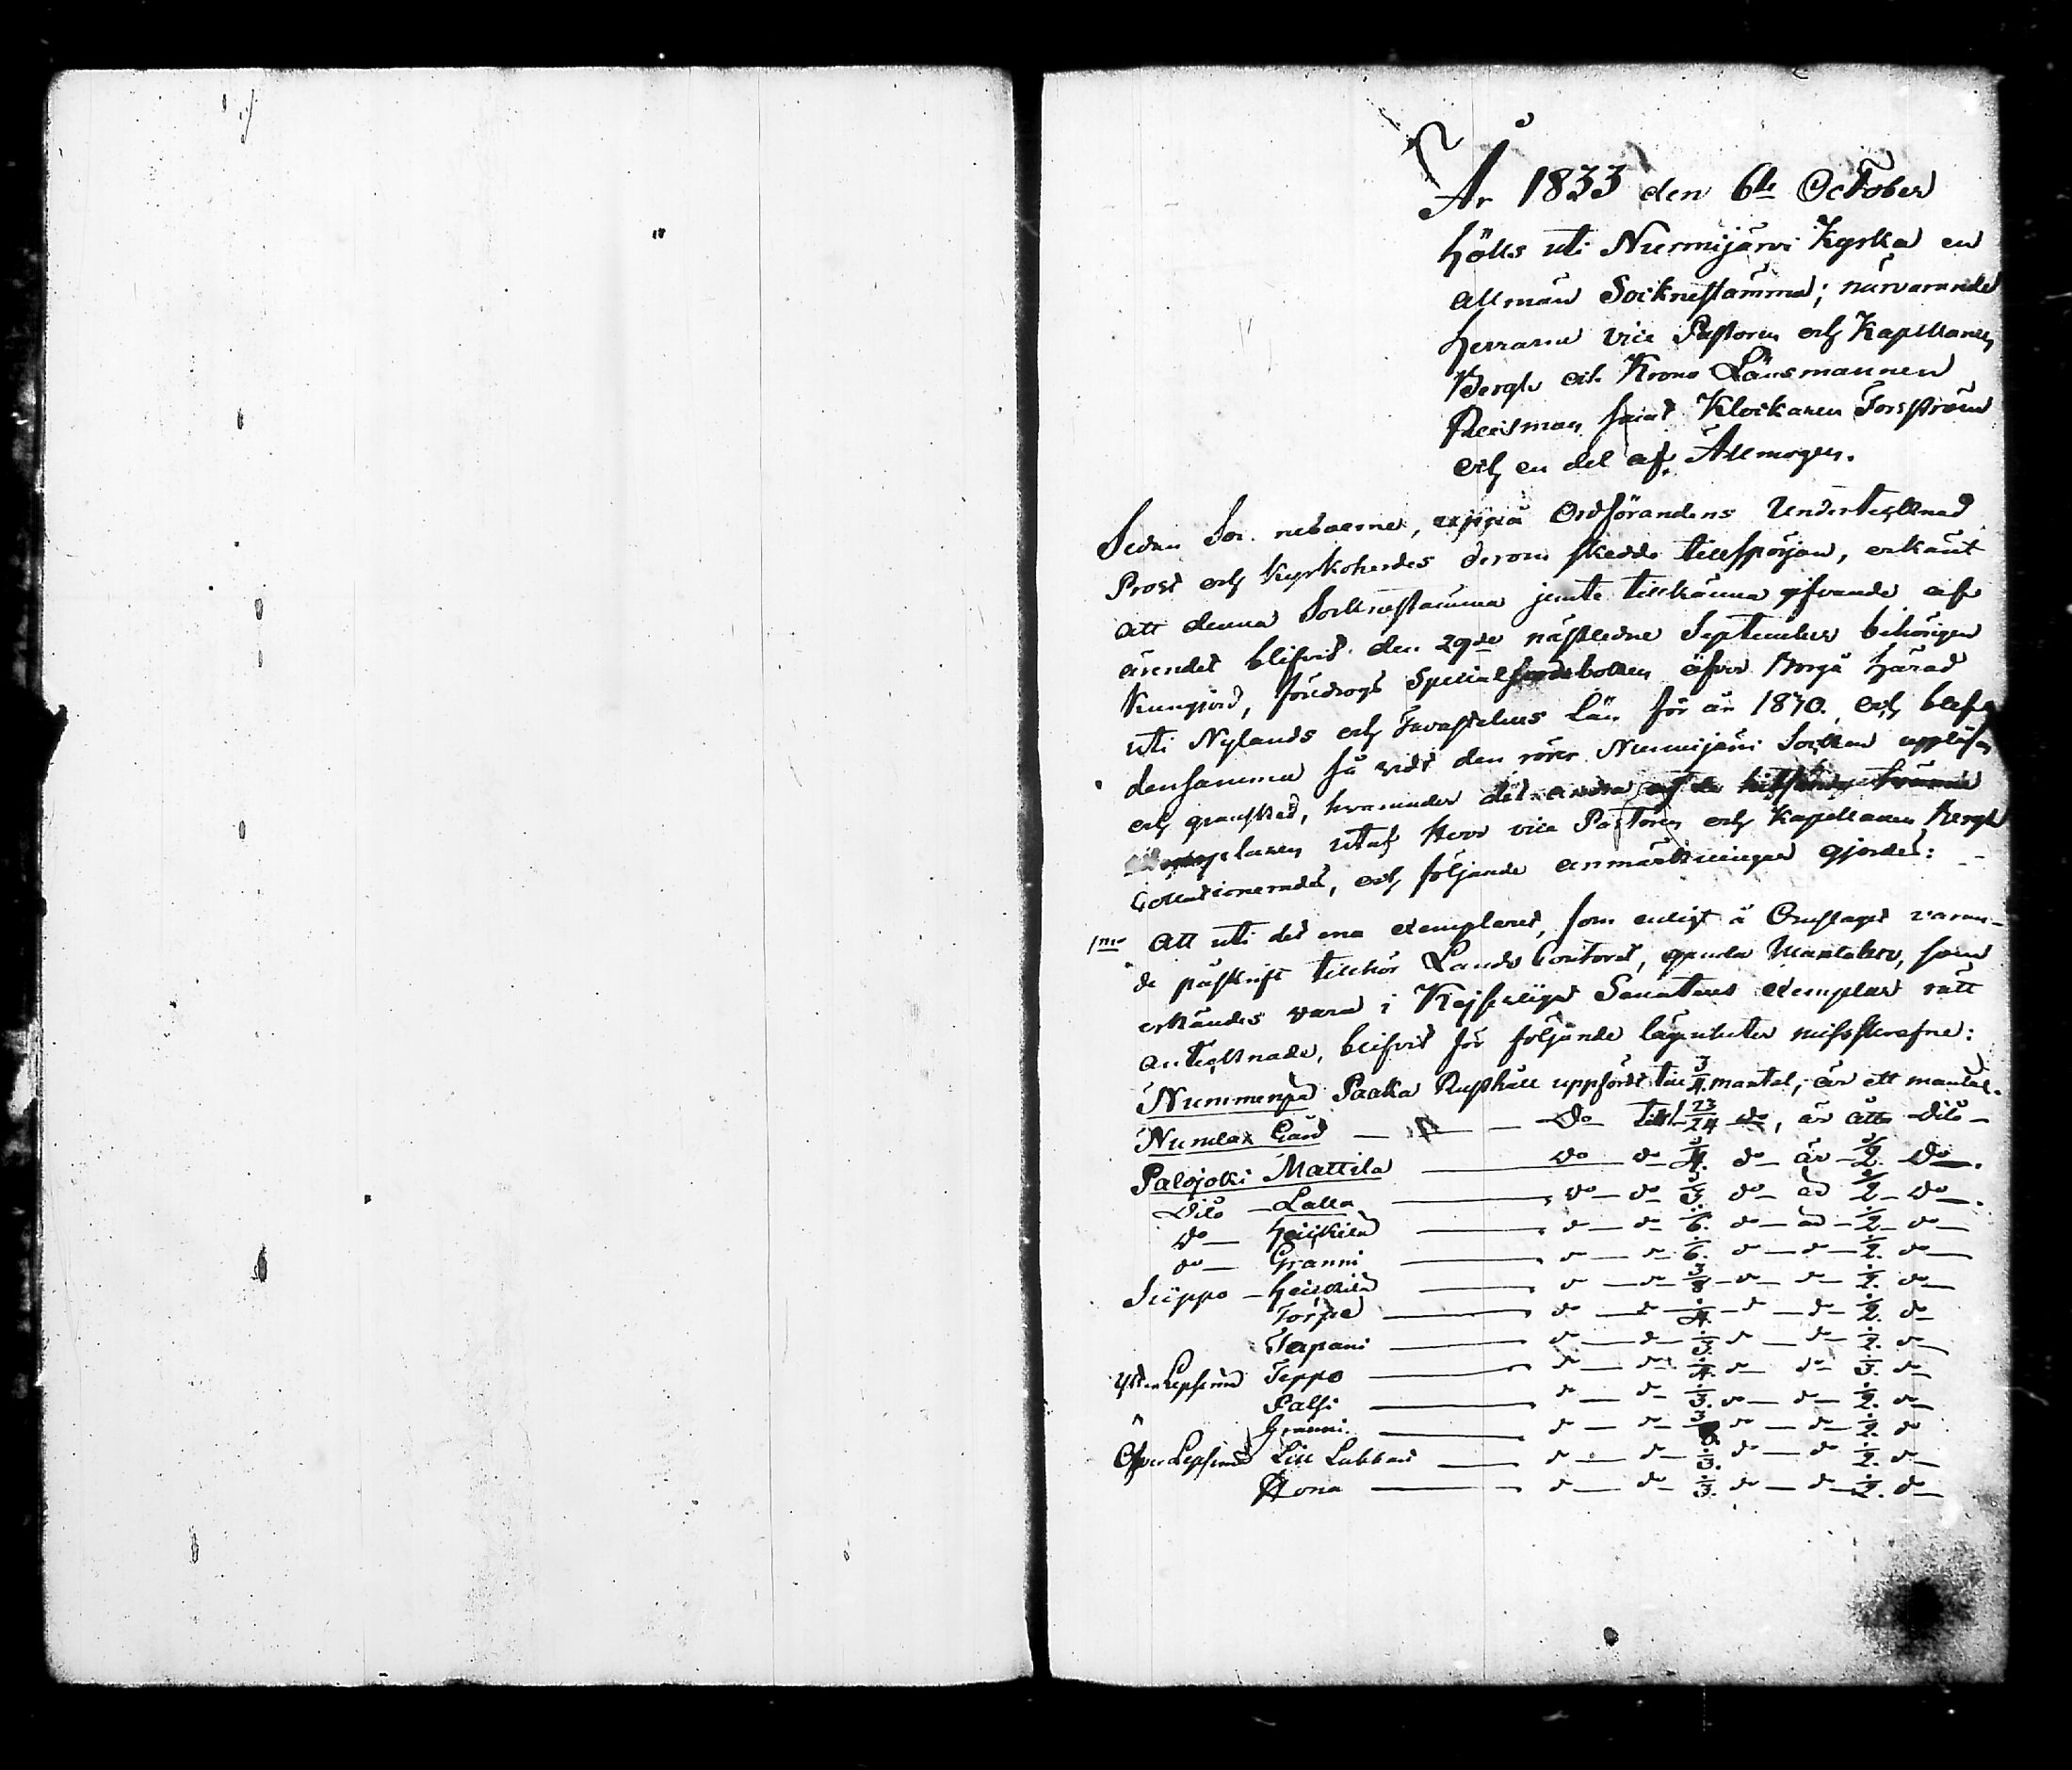 År 1833 den 6te October
hölls uti Nurmijärvi Kyrka en
allmän Socknestämma; närvarande
Herrarne vice Pastorn och Kapellanen
Bergh och Krono Länsmannen
Reisman samt Klockaren Forsström
och en del af Allmogen.
Sedan Soc neboerne, uppå Ordförandens Undertecknad
Prost och Kyrkoherdes derom skedde tillspörjan, erkänt
att denna Socknestämma jemte tillkänna gifvande af
ärendet blifvit den 29de nästledne September behörigen
kungjord, föredrogs Special Jordeboken öfver Borgå Härad
uti Nylands och Tavastehus Län för år 1870. och blef
densamma så vidt den rörer Nurmijärvi Socken uppläsen
och granskad, hvarunder det andra af de
utaf Herr vice Pastorn och Kapellanen Bergh
Collationerades, och följande anmärkningar gjordes:
1mo Att uti det ena exemplaret, som enligt å Omslaget varan-
de påskrift tillhör Lands Contoret, gamla Mantalen, som
erkändes vara i Kejserliga Senatens exemplar rätt
antecknade, blifvit för följande lägenheter missskrefne:
Nummenpä Paaka Rusthåll uppfördt till 3/4 mantal, är ett mantal.
Numlax Gård — — do till 1 23/24 do, är åtta dito —
Palojoki Mattila — do do 3/4. do är 1/2. do.
Dito — Lalla — do do 1/3. do är 1/2 do.
do — Heikkilä — do do 1/6. do är 1/2 do
do — Granni — do do 1/6. do do 1/2. do
Siippo — Heikkilä — do do 3/8 do do 1/2. do
Törpä — do do 1/4. do do 1/2. do
Tapani — do do 1/3. do do 1/2. do
Ytter Lepsemä Teppo — do do 1/4. do do 1/3. do
Palsi — do do 1/3. do do 1/2. do
Granni — do do do do 1/2. do
Öfver Lepsemä Lill Labbas — do do 1/3. do do 1/2. do
Hona — do do 1/3. do do 1/2. do